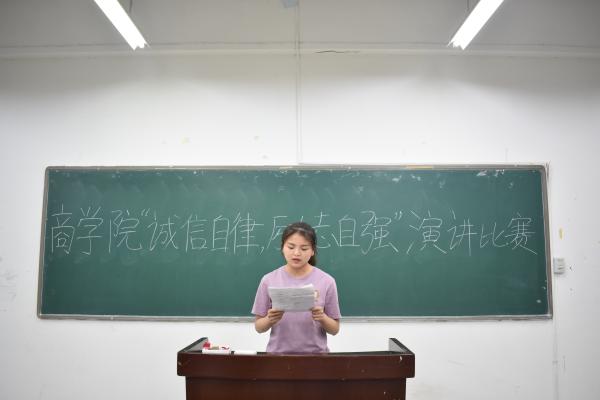 商学院“诚信自律,励志自强”演讲比赛